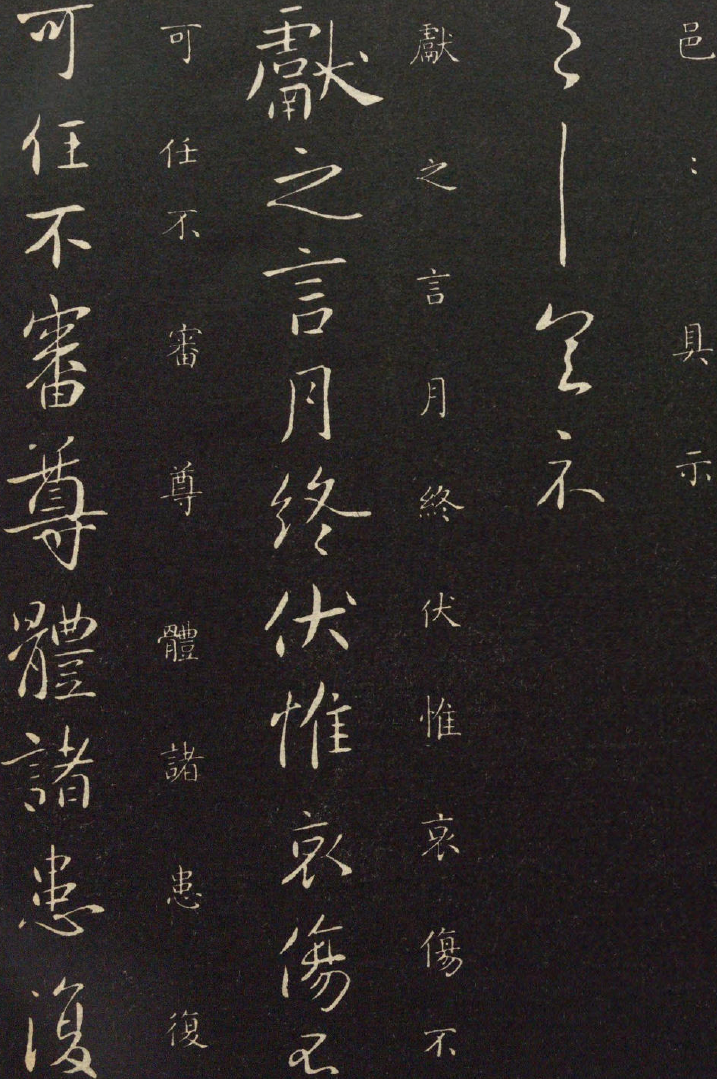 邑：具示
邑〻具示
獻之言月終伏惟哀傷不
獻之言月終伏惟哀傷不
可任不審尊體諸患復
可任不審尊體諸患復